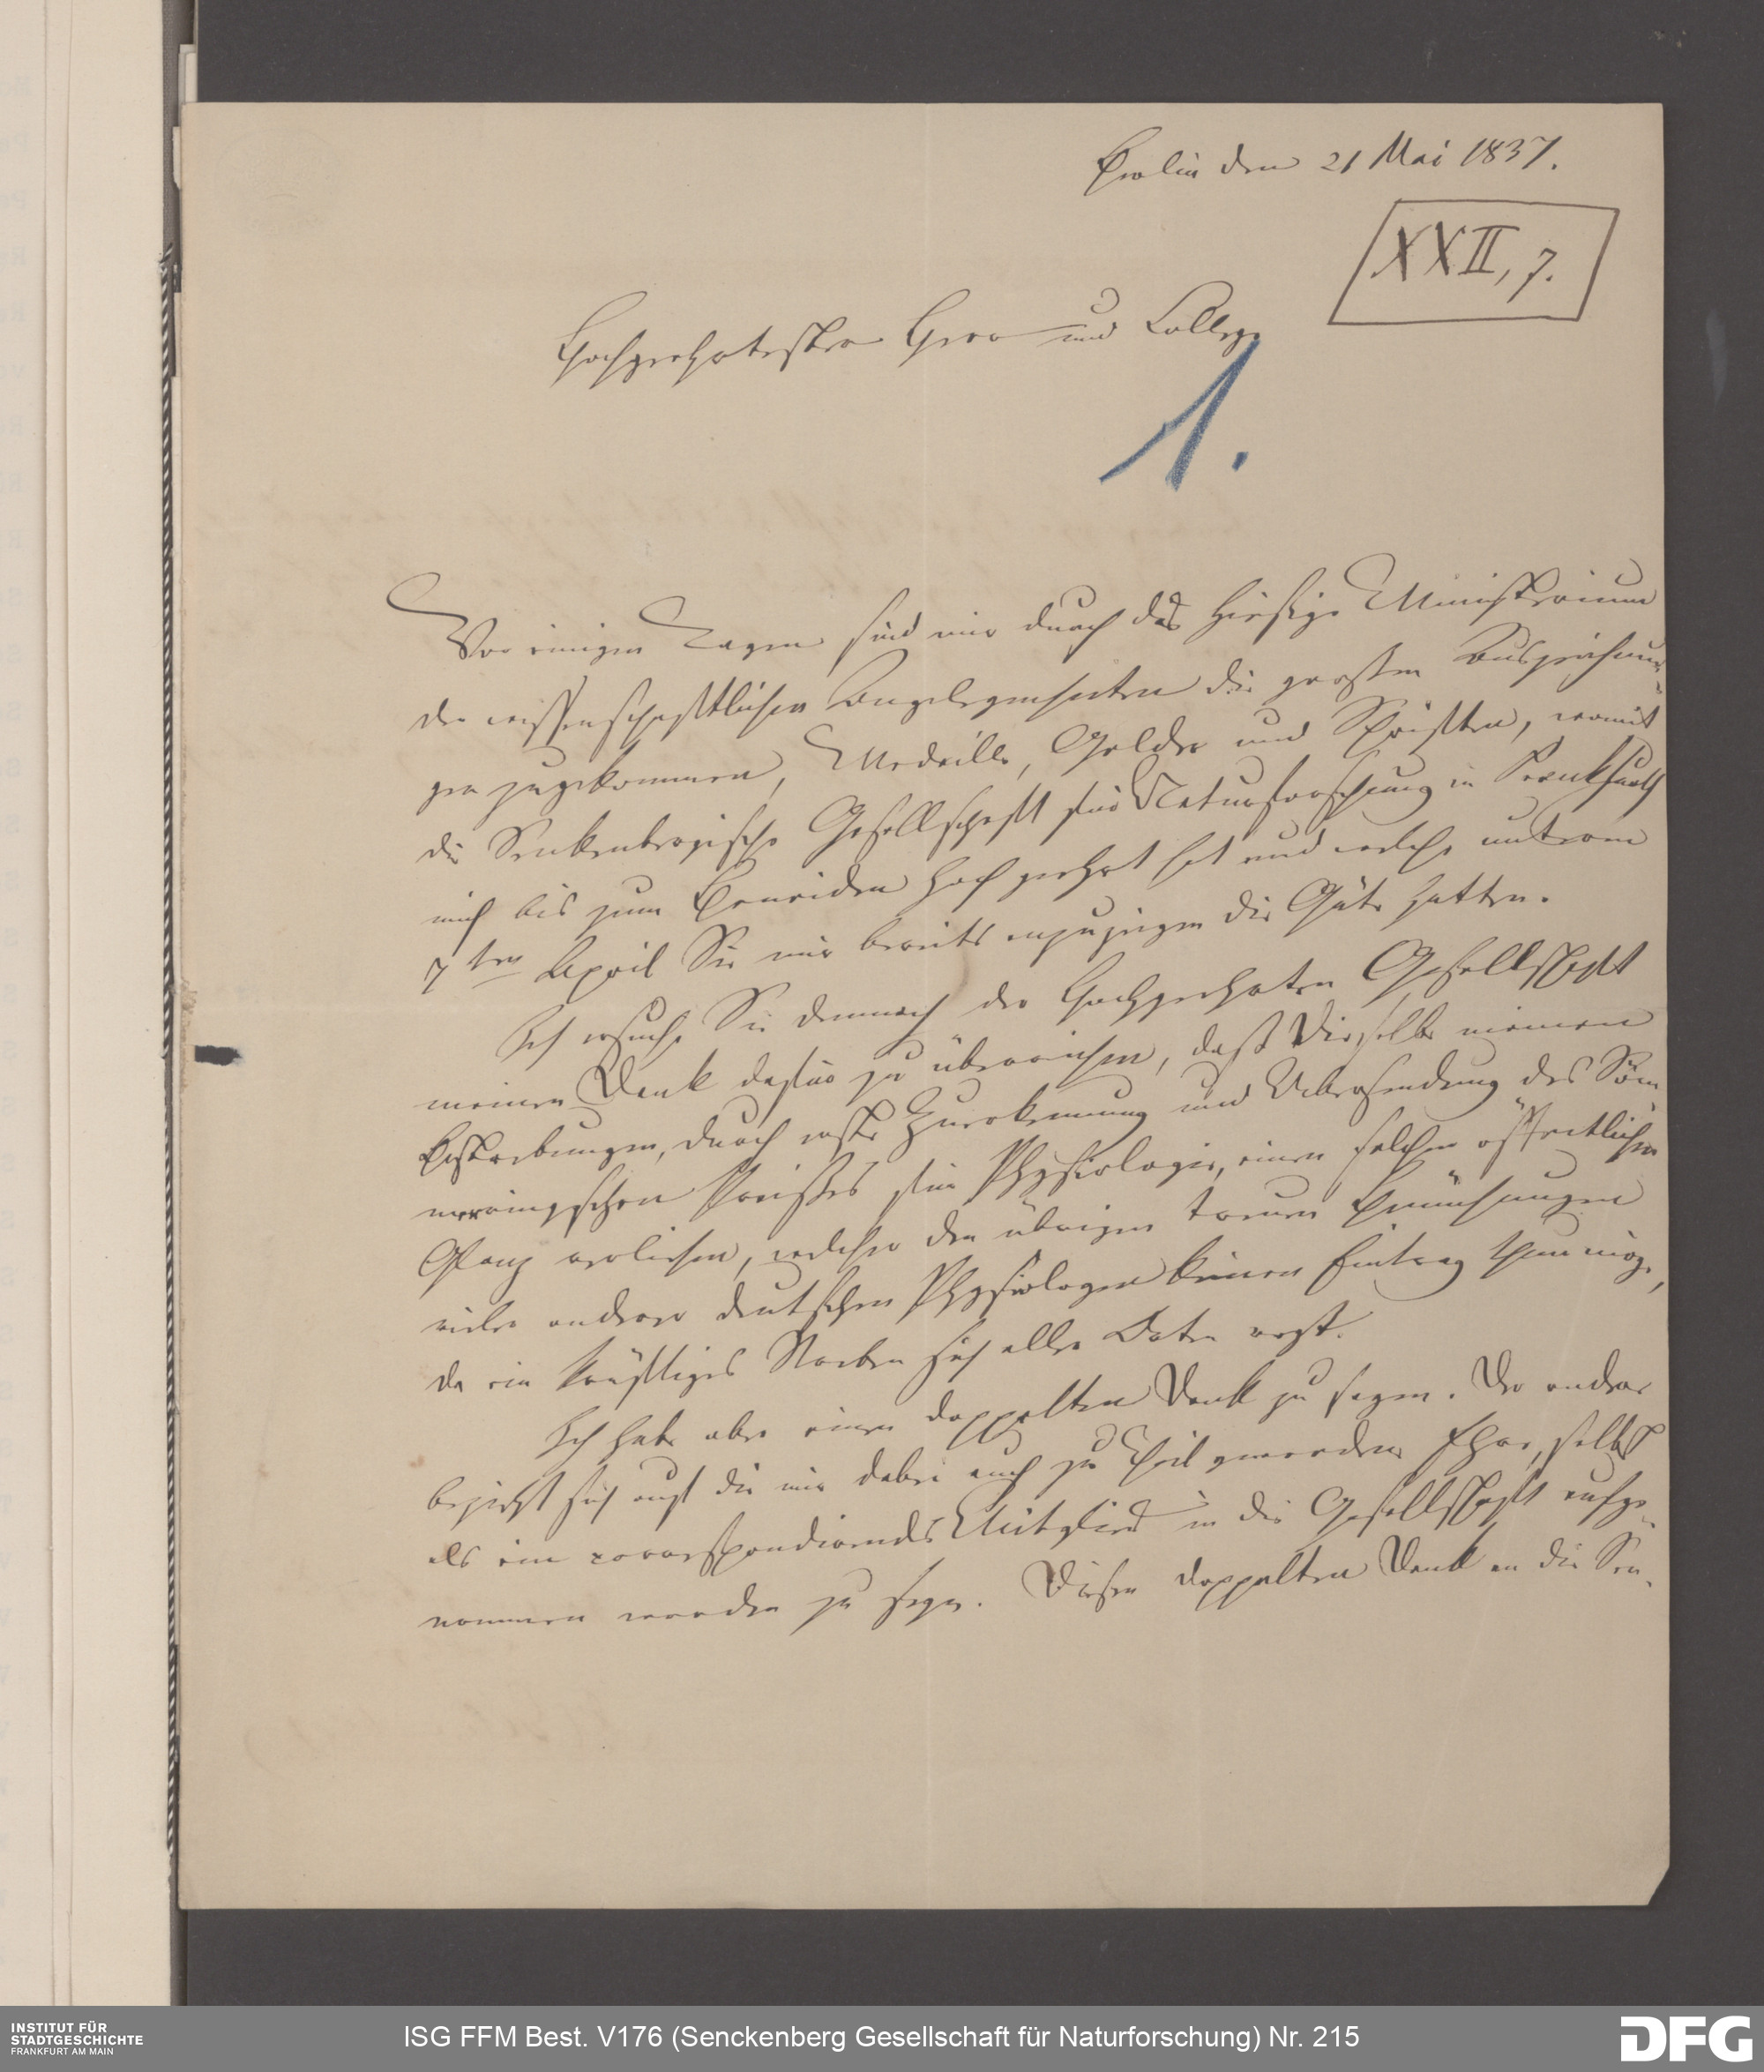 Berlin den 21 Mai 1837.
XXII, 7.
Hochgeehrtester Herr und College
1.
Vor einigen Tagen sind mir durch das hiesige Ministerium
der wissenschaftlichen Angelegenheiten die großen Auszeichnun-
gen zugekommen, Medaille, Gelder und Schriften, womit
die Senkenbergische Gesellschaft für Naturforschung in Frankfurth
mich bis zum Beneiden hoch geehrt hat und welche unterm
7ten April Sie mir bereits anzuzeigen die Güte hatten.
Ich ersuche Sie demnach der Hochgeehrten Gesellschaft
meinen Dank dafür zu überreichen, daß Dieselbe meinen
Bestrebungen, durch erste Zuerkennung und Uebersendung des Söm-
merringschen Preißes für Physiologie, einen solchen öffentlichen
Glanz verliehen, welcher den übrigen treuen Bemühungen
vieler anderer deutschen Physiologen keinen Eintrag thun möge,
da ein kräftiges Streben sich aller Orten regt.
Ich habe aber einen doppelten Dank zu sagen. Der andere
bezieht sich auf die mir dabei auch zu Theil gewordene Ehre, selbst
als ein correspondirendes Mitglied in die Gesellschaft aufge-
nommen worden zu seyn. Diesen doppelten Dank an die Sen-
INSTITUT FÜR
STADTGESCHICHTE
FRANKFURT AM MAIN
ISG FFM Best. V176 (Senckenberg Gesellschaft für Naturforschung) Nr. 215
DFG